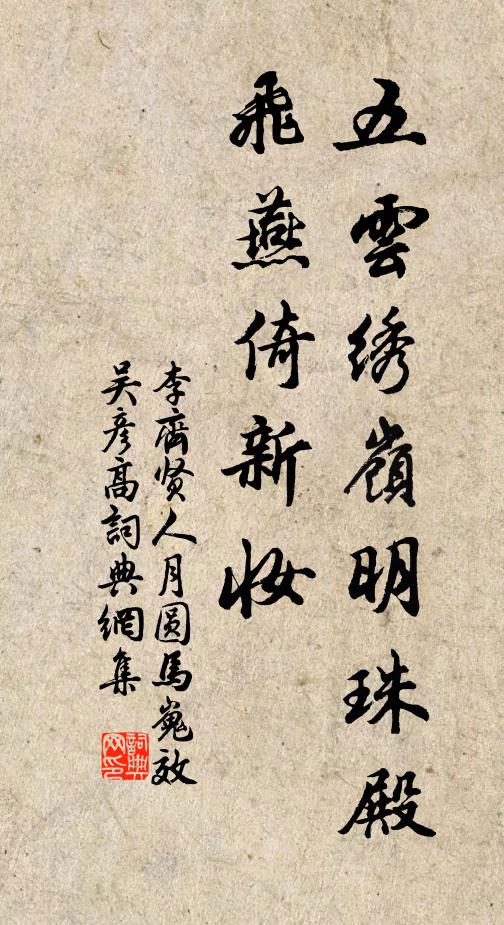 五雲绣嶺明珠殿
飛燕倚新妆
李齊贤人月圆馬嵬效
吴彦高詞典網集
詞典网印